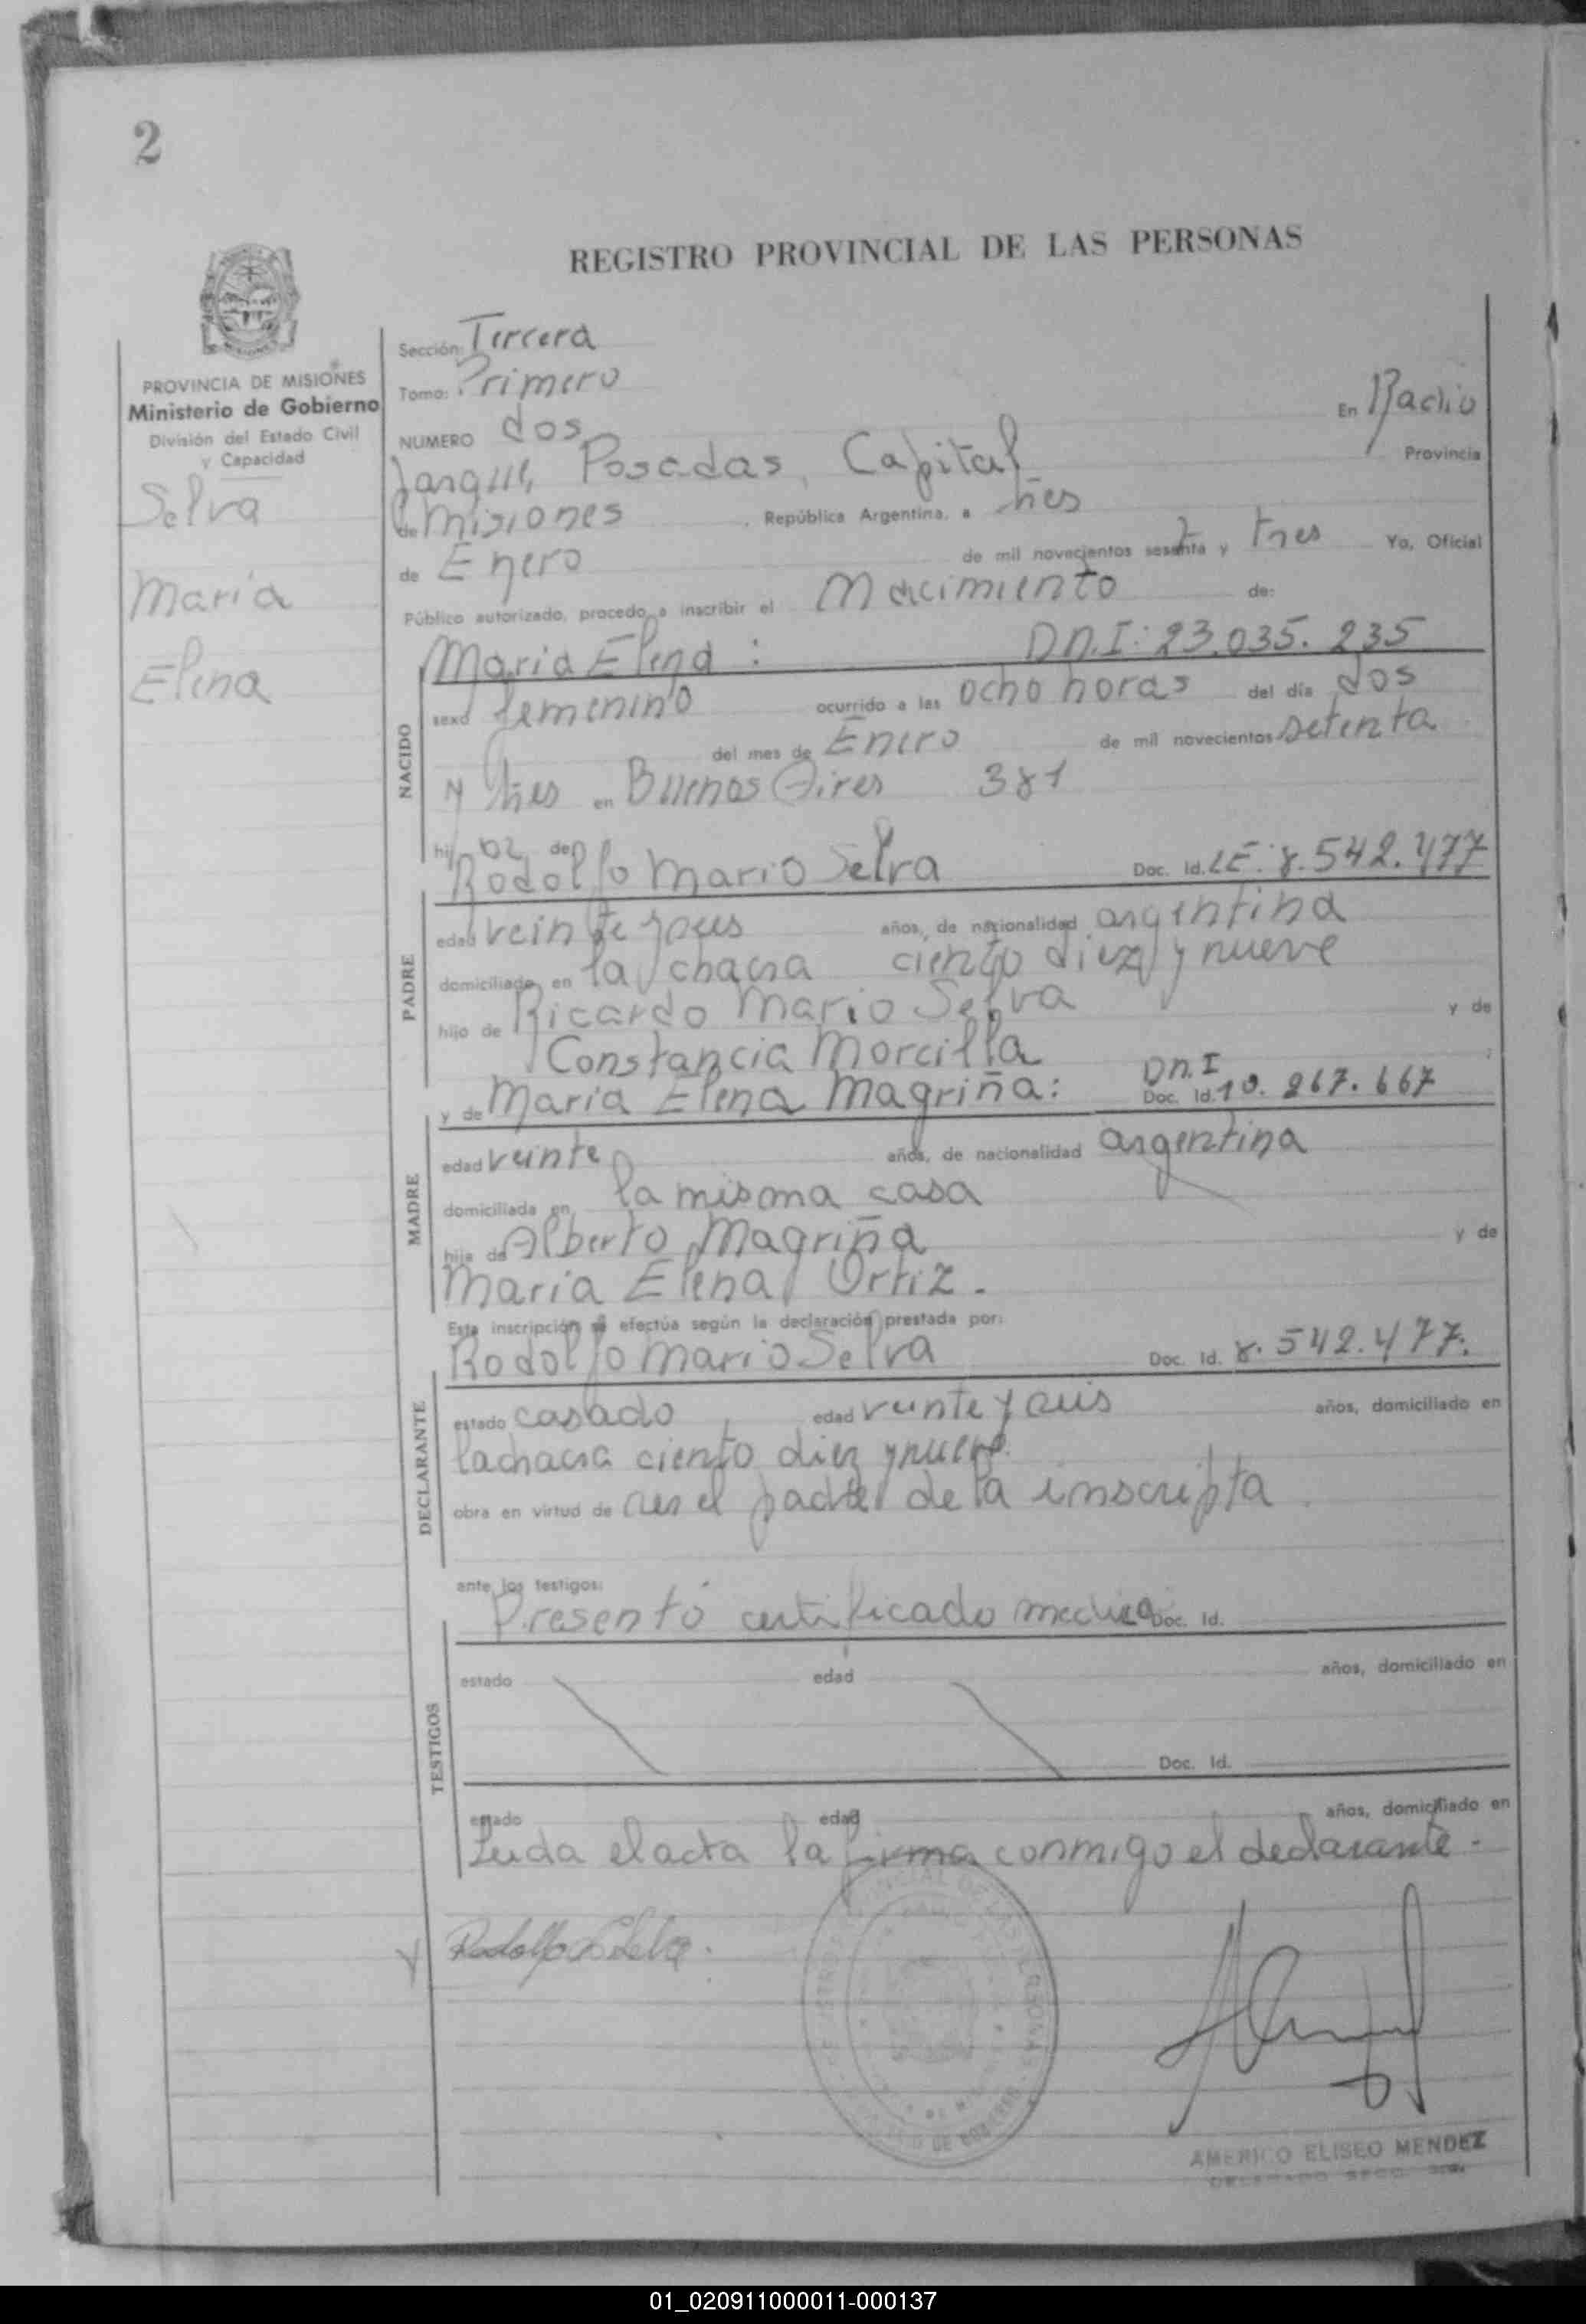 2
REGISTRO PROVINCIAL DE LAS PERSONAS
PROVINCIA DE MISIONES
Ministerio de Gobierno
División del Estado Civil
y Capacidad
Selva
Maria
Elena
Sección: Tercera
Tomo: Primero
En Radio
NUMERO dos
Provincia
Parque, Posadas, Capital
de Misiones, República Argentina, a tres
de Enero de mil novecientos sesenta y tres Yo, Oficial
Público autorizado, procedo a inscribir el Nacimiento de:
Maria Elena: D.N.I: 23.035.235
NACIDO
sexo femenino ocurrido a las ocho horas del día dos
del mes de Enero de mil novecientos setenta
y tres en Buenos Aires 381
hij de
Rodolfo Mario Selva Doc. Id. LE: 8.542.477
PADRE
edad veinte y seis años, de nacionalidad argentina
domiciliado en la chacra ciento diez y nueve
hijo de Ricardo Mario Selva y de
Constancia Morcilla
y de Maria Elena Magriña: D.N.I Doc. Id. 10.267.667
MADRE
edad veinte años, de nacionalidad argentina
domiciliada en la misma casa
hija de Alberto Magriña y de
Maria Elena Ortiz.
Esta inscripción se efectúa según la declaración prestada por:
Rodolfo Mario Selva Doc. Id. 8.542.477.
DECLARANTE
estado casado, edad veinte y seis años, domiciliado en
la chacra ciento diez y nueve.
obra en virtud de ser el padre de la inscripta
ante los testigos:
Presentó certificado medico Doc. Id.
TESTIGOS
estado edad años, domiciliado en
Doc. Id.
estado edad años, domiciliado en
Leida el acta la firma conmigo el declarante.
AMERICO ELISEO MENDEZ
01_020911000011-000137